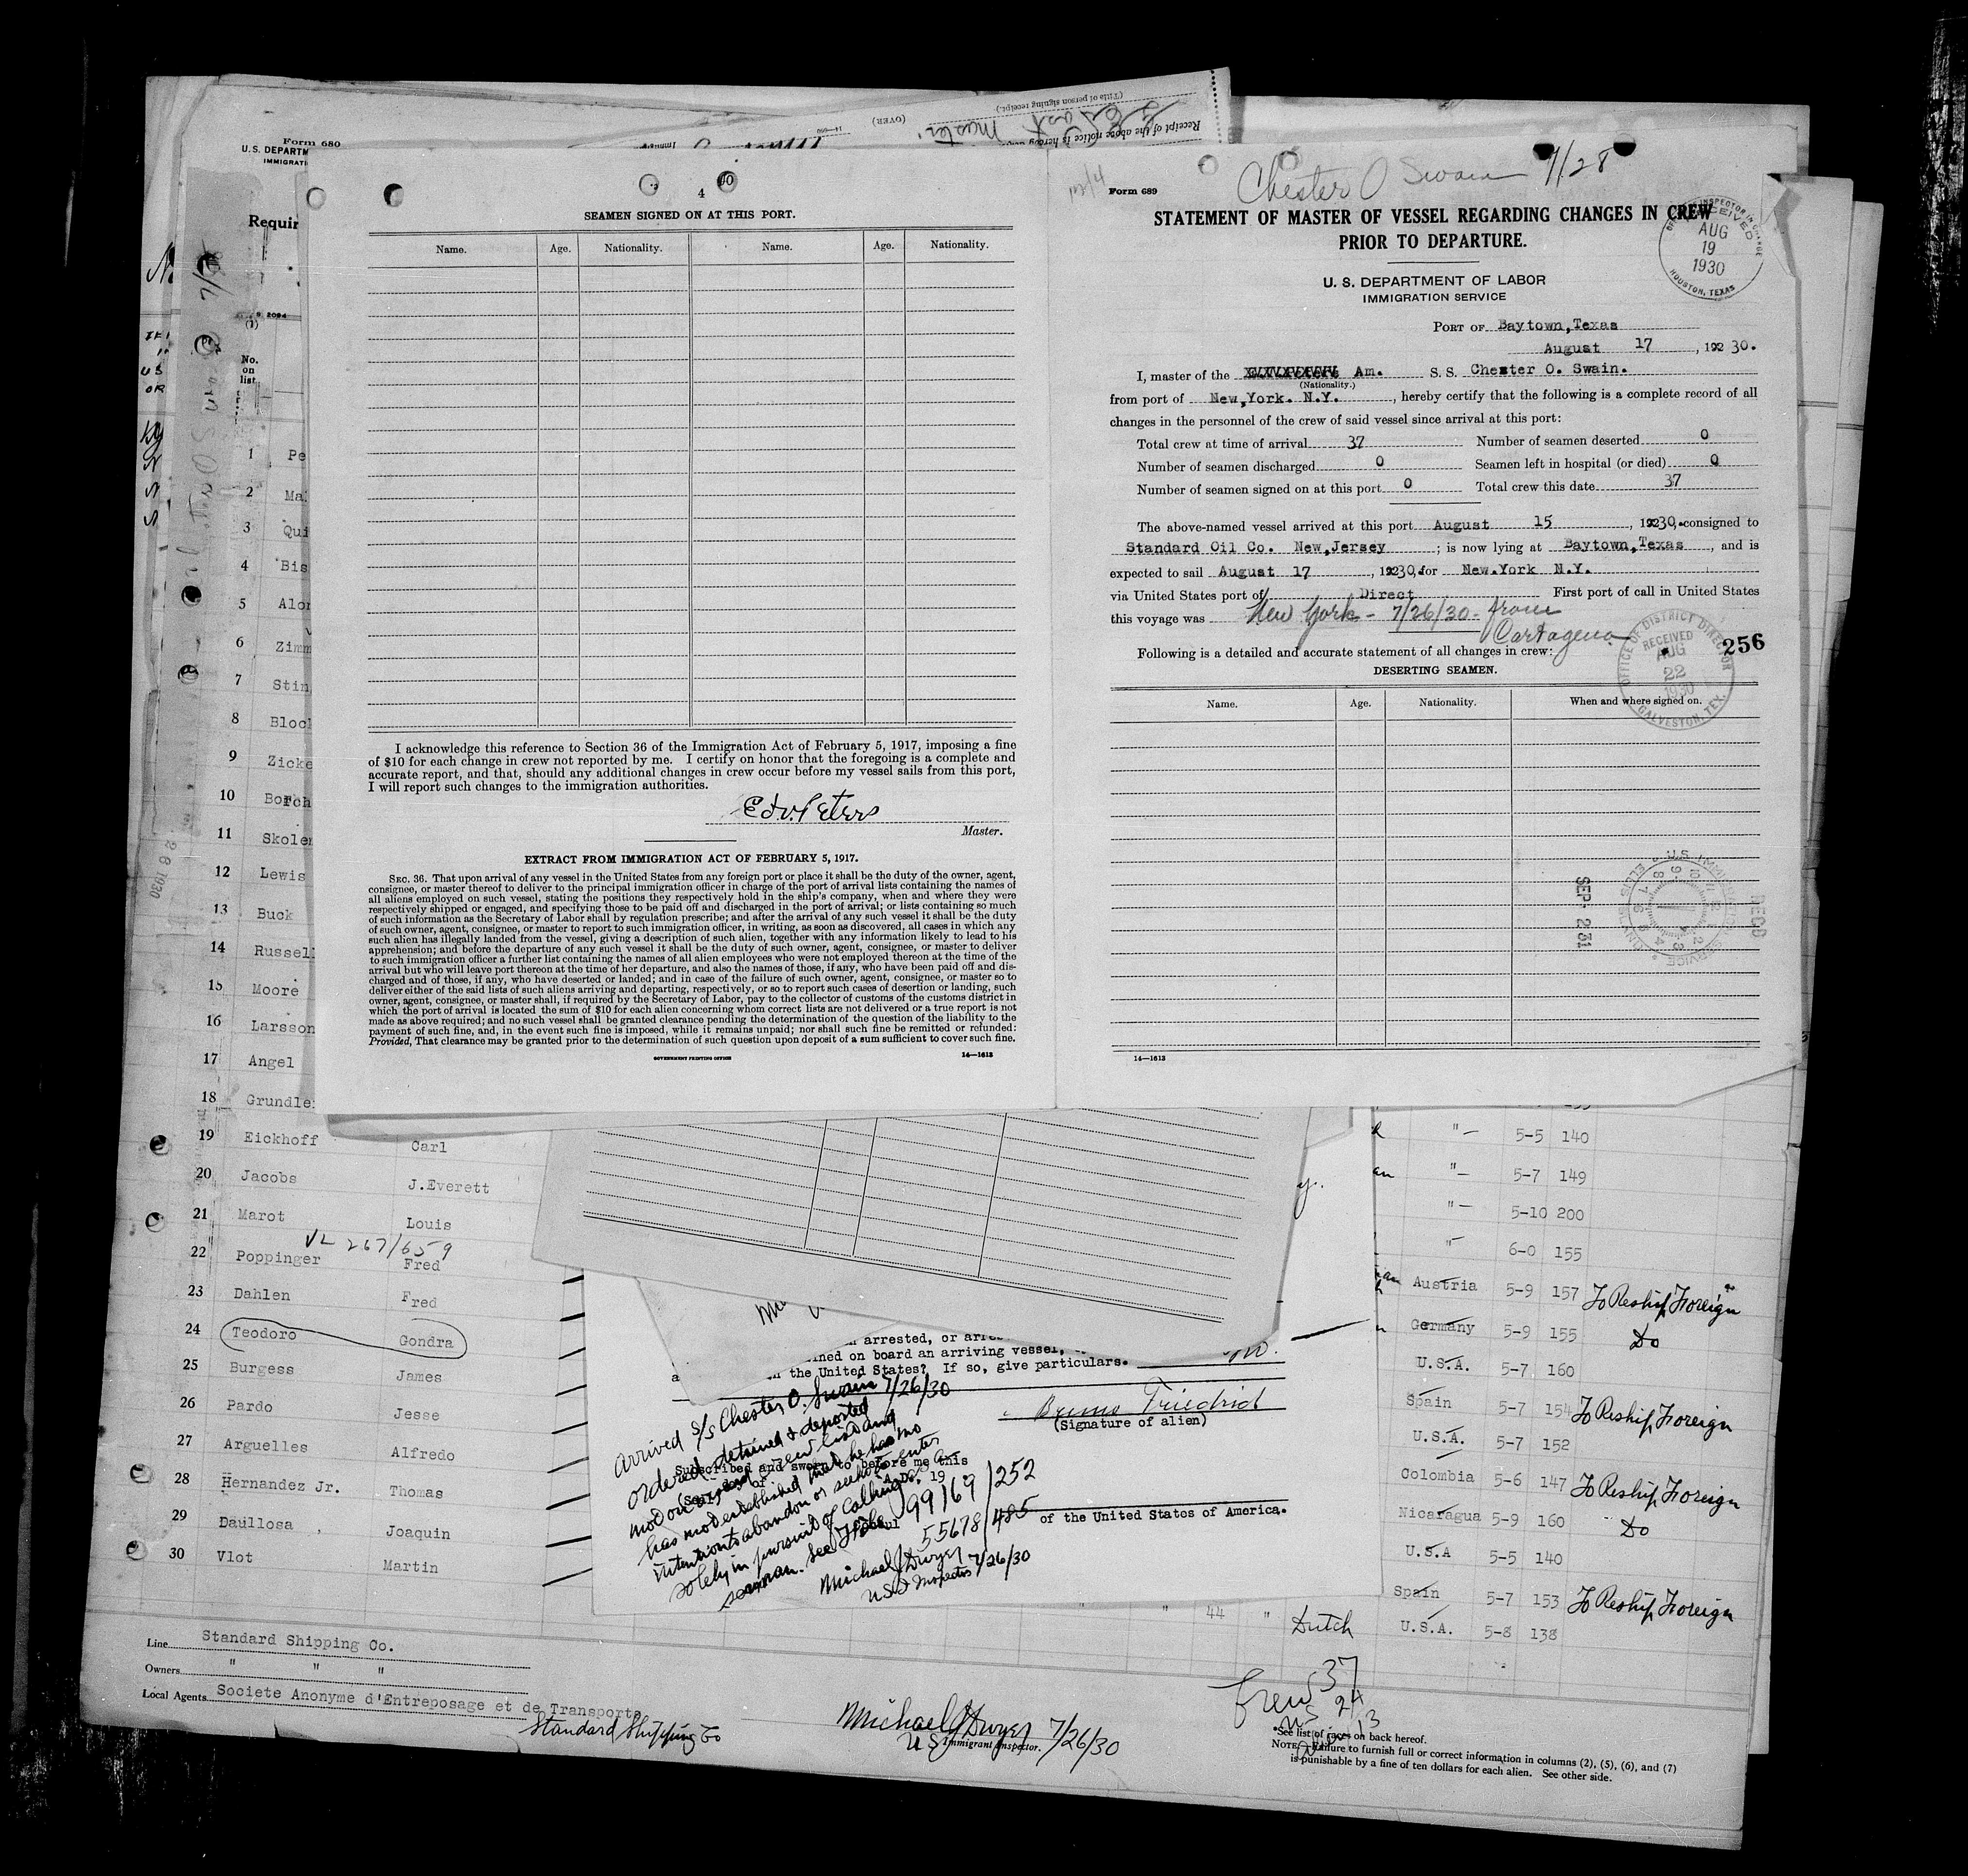 Form 680
U. S. DEPARTM
IMMIGRATI
Requir
(Title of person signing receipt.)
Receipt of the above notice is hereby
(OVER)
4
SEAMEN SIGNED ON AT THIS PORT.
Name. Age. Nationality. Name. Age. Nationality.
I acknowledge this reference to Section 36 of the Immigration Act of February 5, 1917, imposing a fine
of $10 for each change in crew not reported by me. I certify on honor that the foregoing is a complete and
accurate report, and that, should any additional changes in crew occur before my vessel sails from this port,
I will report such changes to the immigration authorities.
Edw. Peters
Master.
EXTRACT FROM IMMIGRATION ACT OF FEBRUARY 5, 1917.
SEC. 36. That upon arrival of any vessel in the United States from any foreign port or place it shall be the duty of the owner, agent,
consignee, or master thereof to deliver to the principal immigration officer in charge of the port of arrival lists containing the names of
all aliens employed on such vessel, stating the positions they respectively hold in the ship's company, when and where they were
respectively shipped or engaged, and specifying those to be paid off and discharged in the port of arrival; or lists containing so much
of such information as the Secretary of Labor shall by regulation prescribe; and after the arrival of any such vessel it shall be the duty
of such owner, agent, consignee, or master to report to such immigration officer, in writing, as soon as discovered, all cases in which any
such alien has illegally landed from the vessel, giving a description of such alien, together with any information likely to lead to his
apprehension; and before the departure of any such vessel it shall be the duty of such owner, agent, consignee, or master to deliver
to such immigration officer a further list containing the names of all alien employees who were not employed thereon at the time of the
arrival but who will leave port thereon at the time of her departure, and also the names of those, if any, who have been paid off and dis-
charged and of those, if any, who have deserted or landed; and in case of the failure of such owner, agent, consignee, or master so to
deliver either of the said lists of such aliens arriving and departing, respectively, or so to report such cases of desertion or landing, such
owner, agent, consignee, or master shall, if required by the Secretary of Labor, pay to the collector of customs of the customs district in
which the port of arrival is located the sum of $10 for each alien concerning whom correct lists are not delivered or a true report is not
made as above required; and no such vessel shall be granted clearance pending the determination of the question of the liability to the
payment of such fine, and, in the event such fine is imposed, while it remains unpaid; nor shall such fine be remitted or refunded:
Provided, That clearance may be granted prior to the determination of such question upon deposit of a sum sufficient to cover such fine.
GOVERNMENT PRINTING OFFICE 14—1613
Form 689
Chester O Swain 7/28
STATEMENT OF MASTER OF VESSEL REGARDING CHANGES IN CREW
PRIOR TO DEPARTURE.
RECEIVED
AUG
19
1930
HOUSTON, TEXAS
U. S. DEPARTMENT OF LABOR
IMMIGRATION SERVICE
PORT OF Baytown,Texas
August 17, 192 30.
I, master of the Am. S. S. Chester O. Swain.
(Nationality.)
from port of New,York. N.Y., hereby certify that the following is a complete record of all
changes in the personnel of the crew of said vessel since arrival at this port:
Total crew at time of arrival 37 Number of seamen deserted 0
Number of seamen discharged 0 Seamen left in hospital (or died) 0
Number of seamen signed on at this port 0 Total crew this date 37
The above-named vessel arrived at this port August 15, 19230, consigned to
Standard Oil Co. New,Jersey; is now lying at Baytown,Texas, and is
expected to sail August 17, 19230, for New.York N.Y.
via United States port of Direct First port of call in United States
this voyage was New York - 7/26/30 - from
Cartagena
Following is a detailed and accurate statement of all changes in crew:
OFFICE OF DISTRICT DIRECTOR
RECEIVED
AUG
22
1930
GALVESTON, TEX.
256
DESERTING SEAMEN.
Name. Age. Nationality. When and where signed on.
SEP - 2 31
REC'D
14—1613
No.
on
list
1 Pe
2 Ma
3 Qui
4 Bis
5 Alon
6 Zimm
7 Stin
8 Bloc
9 Zicke
10
11 Skoler
12 Lewis
13 Buck
14 Russell
15 Moore
16 Larsson
17 Angel
18 Grundle
19 Eickhoff Carl "— 5-5 140
20 Jacobs J.Everett "— 5-7 149
21 Marot Louis "— 5-10 200
VL 267/659
22 Poppinger Fred "— 6-0 155
23 Dahlen Fred Austria 5-9 157 To Reship Foreign
24 Teodoro Gondra Germany 5-9 155 Do
25 Burgess James U.S.A. 5-7 160
26 Pardo Jesse Spain 5-7 154 To Reship Foreign
27 Arguelles Alfredo U.S.A. 5-7 152
28 Hernandez Jr. Thomas Colombia 5-6 147 To Reship Foreign
29 Daullosa Joaquin Nicaragua 5-9 160 Do
30 Vlot Martin U.S.A 5-5 140
Spain 5-7 153 To Reship Foreign
44 " Dutch U.S.A. 5-8 138
arrested, or
ined on board an arriving vessel,
the United States? If so, give particulars. no.
Bruno Friedrich
(Signature of alien)
Subscribed and sworn to before me this
A.D. 19
of the United States of America.
arrived s/s Chester O. Swain 7/26/30
ordered detained & deported
not on visaed crew list and
has not established that he has no
intention to abandon or seek to enter
solely in pursuit of calling as
seaman. See File 99169/252
55678/485
Michael J Dwyer
US Inspector 7/26/30
Line Standard Shipping Co.
Owners " " "
Local Agents Societe Anonyme d'Entreposage et de Transports
Standard Shipping Co
Michael J Dwyer 7/26/30
US Immigrant Inspector.
Crew 37
US 24
13
*See list of races on back hereof.
NOTE.—Failure to furnish full or correct information in columns (2), (5), (6), and (7)
is punishable by a fine of ten dollars for each alien. See other side.